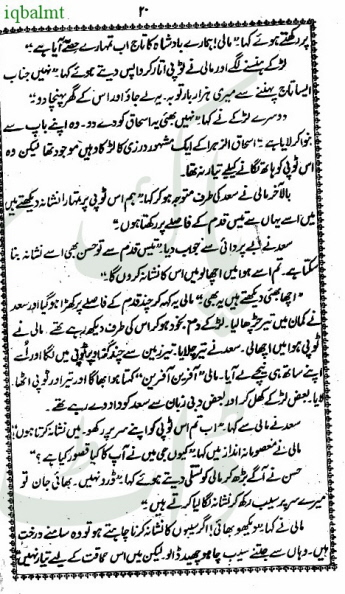 iqbalmt
۲۰
پر رکھتے ہوئے کہا "مالی! ہمارے بادشاہ کا تاج اب تمہارے حصے آیا ہے"
لڑکے ہنسنے لگے اور مالی نے ٹوپی اتار کر واپس دیتے ہوئے کہا "نہیں جناب
ایسا تاج پہننے سے میری ہزار بار توبہ۔ یہ لے جاؤ اور اس کے گھر پہنچا دو"
دوسرے لڑکے نے کہا "نہیں بھئی یہ اسحاق کو دے دو۔ وہ اپنے باپ سے
بنوا کر لایا ہے" اسحاق الزہرا کے ایک مشہور درزی کا لڑکا وہیں موجود تھا لیکن وہ
اس ٹوپی کو ہاتھ لگانے کیلئے تیار نہ تھا۔
بالآخر مالی نے سعد کی طرف متوجہ ہو کر کہا "ہم اس ٹوپی پر تمہارا نشانہ دیکھتے ہیں
میں اسے یہاں سے تیس قدم کے فاصلے پر رکھتا ہوں"
سعد نے بے پروائی سے جواب دیا "تیس قدم سے تو حسن بھی اسے نشانہ بنا
سکتا ہے۔ تم اسے ہوا میں اچھالو میں اس کا نشانہ کروں گا"
"اچھا بھئی دیکھتے ہیں یہ بھی" مالی یہ کہہ کر چند قدم کے فاصلے پر کھڑا ہو گیا اور سعد
نے کمان میں تیر چڑھا لیا۔ لڑکے دم بخود ہو کر اس کی طرف دیکھ رہے تھے۔ مالی نے
ٹوپی ہوا میں اچھالی۔ سعد نے تیر چلایا۔ تیر زمین سے چند گز اوپر ٹوپی میں لگا اور اُسے
اپنے ساتھ ہی نیچے لے آیا۔ مالی "آفرین آفرین" کہتا ہوا بھاگا اور تیر اور ٹوپی اٹھا
لایا۔ بعض لڑکے کھل کر اور بعض دبی زبان سے سعد کو داد دے رہے تھے۔
سعد نے مالی سے کہا "اب تم اس ٹوپی کو اپنے سر پر رکھو۔ میں نشانہ کرتا ہوں"
مالی نے معصومانہ انداز میں کہا "کیوں جی میں نے آپ کا کیا قصور کیا ہے؟"
حسن نے آگے بڑھ کر مالی کو تسلی دیتے ہوئے کہا "ڈرو نہیں۔ بھائی جان تو
میرے سر پر سیب رکھ کر نشانہ لگا لیا کرتے ہیں"
مالی نے کہا "دیکھو بھائی! اگر سیبوں کا نشانہ کرنا چاہتے ہو تو وہ سامنے درخت
ہیں۔ وہاں سے جتنے سیب چاہو چھید ڈالو لیکن میں اس حماقت کے لیے تیار نہیں"